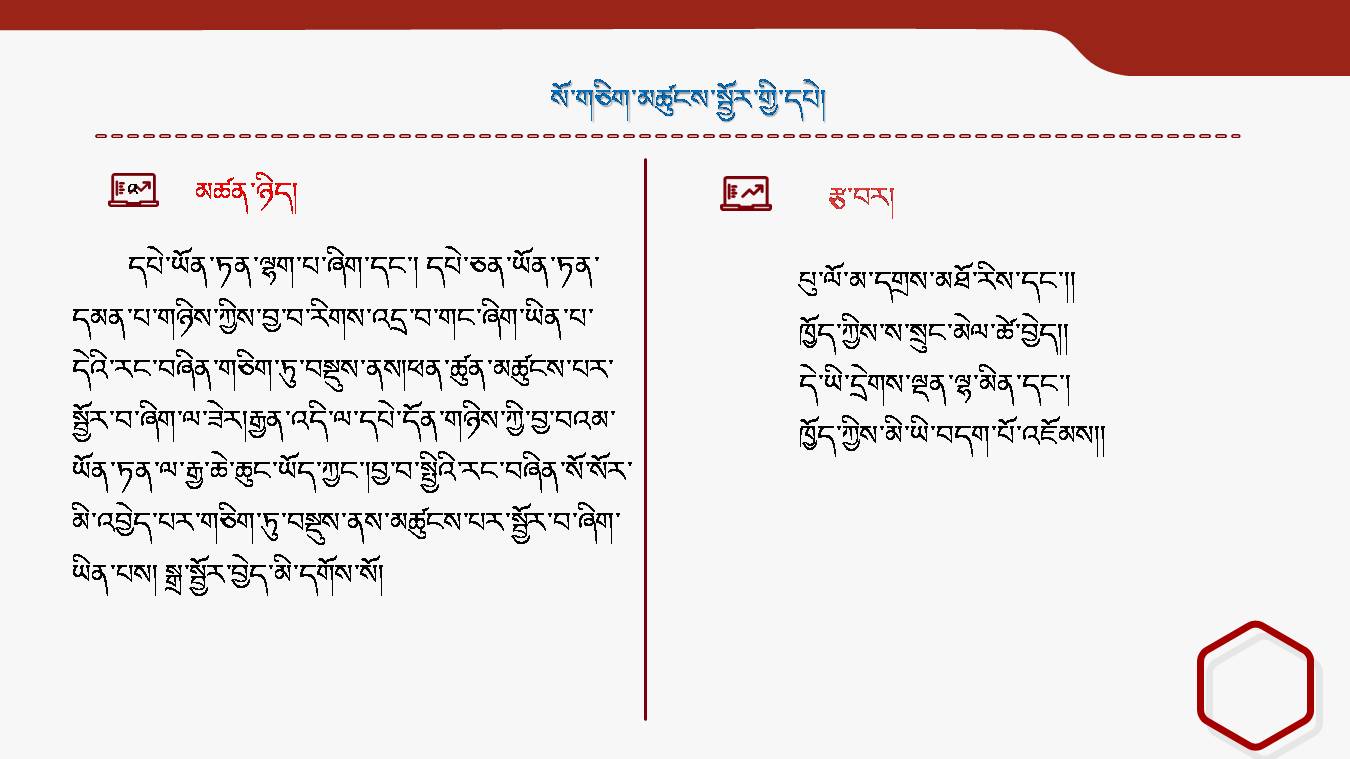 སོ་གཅིག་མཚུངས་སྦྱོར་གྱི་དཔེ།
མཚན་ཉིད།
དཔེ་ཡོན་ཏན་ལྷག་པ་ཞིག་དང་། དཔེ་ཅན་ཡོན་ཏན་
དམན་པ་གཉིས་ཀྱིས་བྱ་བ་རིགས་འདྲ་བ་གང་ཞིག་ཡིན་པ་
དེའི་རང་བཞིན་གཅིག་ཏུ་བསྡུས་ནས།ཕན་ཚུན་མཚུངས་པར་
སྦྱོར་བ་ཞིག་ལ་ཟེར།རྒྱན་འདི་ལ་དཔེ་དོན་གཉིས་ཀྱི་བྱ་བའམ་
ཡོན་ཏན་ལ་རྒྱ་ཆེ་ཆུང་ཡོད་ཀྱང་།བྱ་བ་སྤྱིའི་རང་བཞིན་སོ་སོར་
མི་འབྱེད་པར་གཅིག་ཏུ་བསྡུས་ནས་མཚུངས་པར་སྦྱོར་བ་ཞིག་
ཡིན་པས། སྒྲ་སྦྱོར་བྱེད་མི་དགོས་སོ།
རྩ་བར།
པུ་ལོ་མ་དགྲས་མཐོ་རིས་དང་།།
ཁྱོད་ཀྱིས་ས་སྲུང་མེལ་ཚེ་བྱེད།།
དེ་ཡི་དྲེགས་ལྡན་ལྷ་མིན་དང་།
ཁྱོད་ཀྱིས་མི་ཡི་བདག་པོ་འཇོམས།།